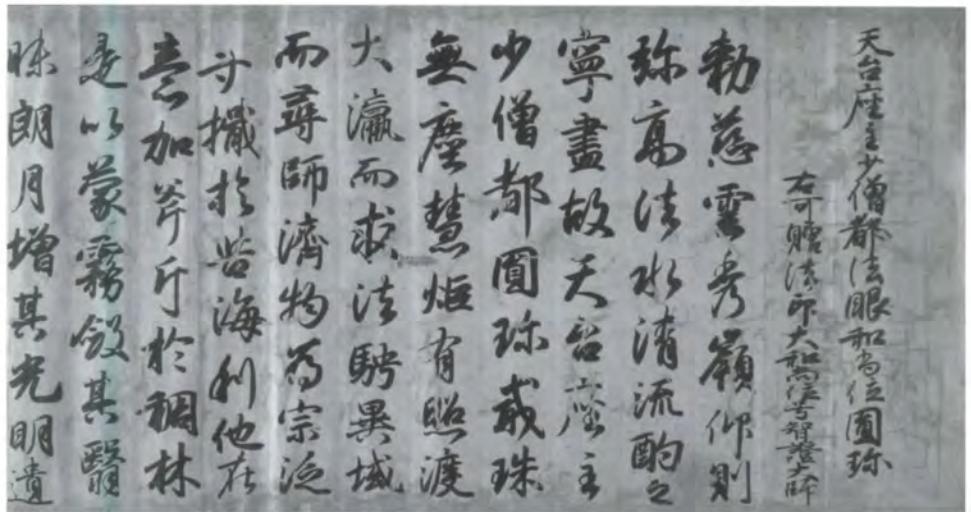 天台座主少僧都法眼和尚位圓珎
右可贈法印大和尚位号智證大師
勅慈雲秀嶺仰則
弥高法水清流酌之
寧盡故天台座主
少僧都圓珎戒珠
無塵慧炬有照渡
大瀛而求法騁異域
而尋師濟物為宗泛
寸檝於苦海利他在
意加斧斤於稠林
是以蒙霧斂其翳
昧朗月增其光明遺